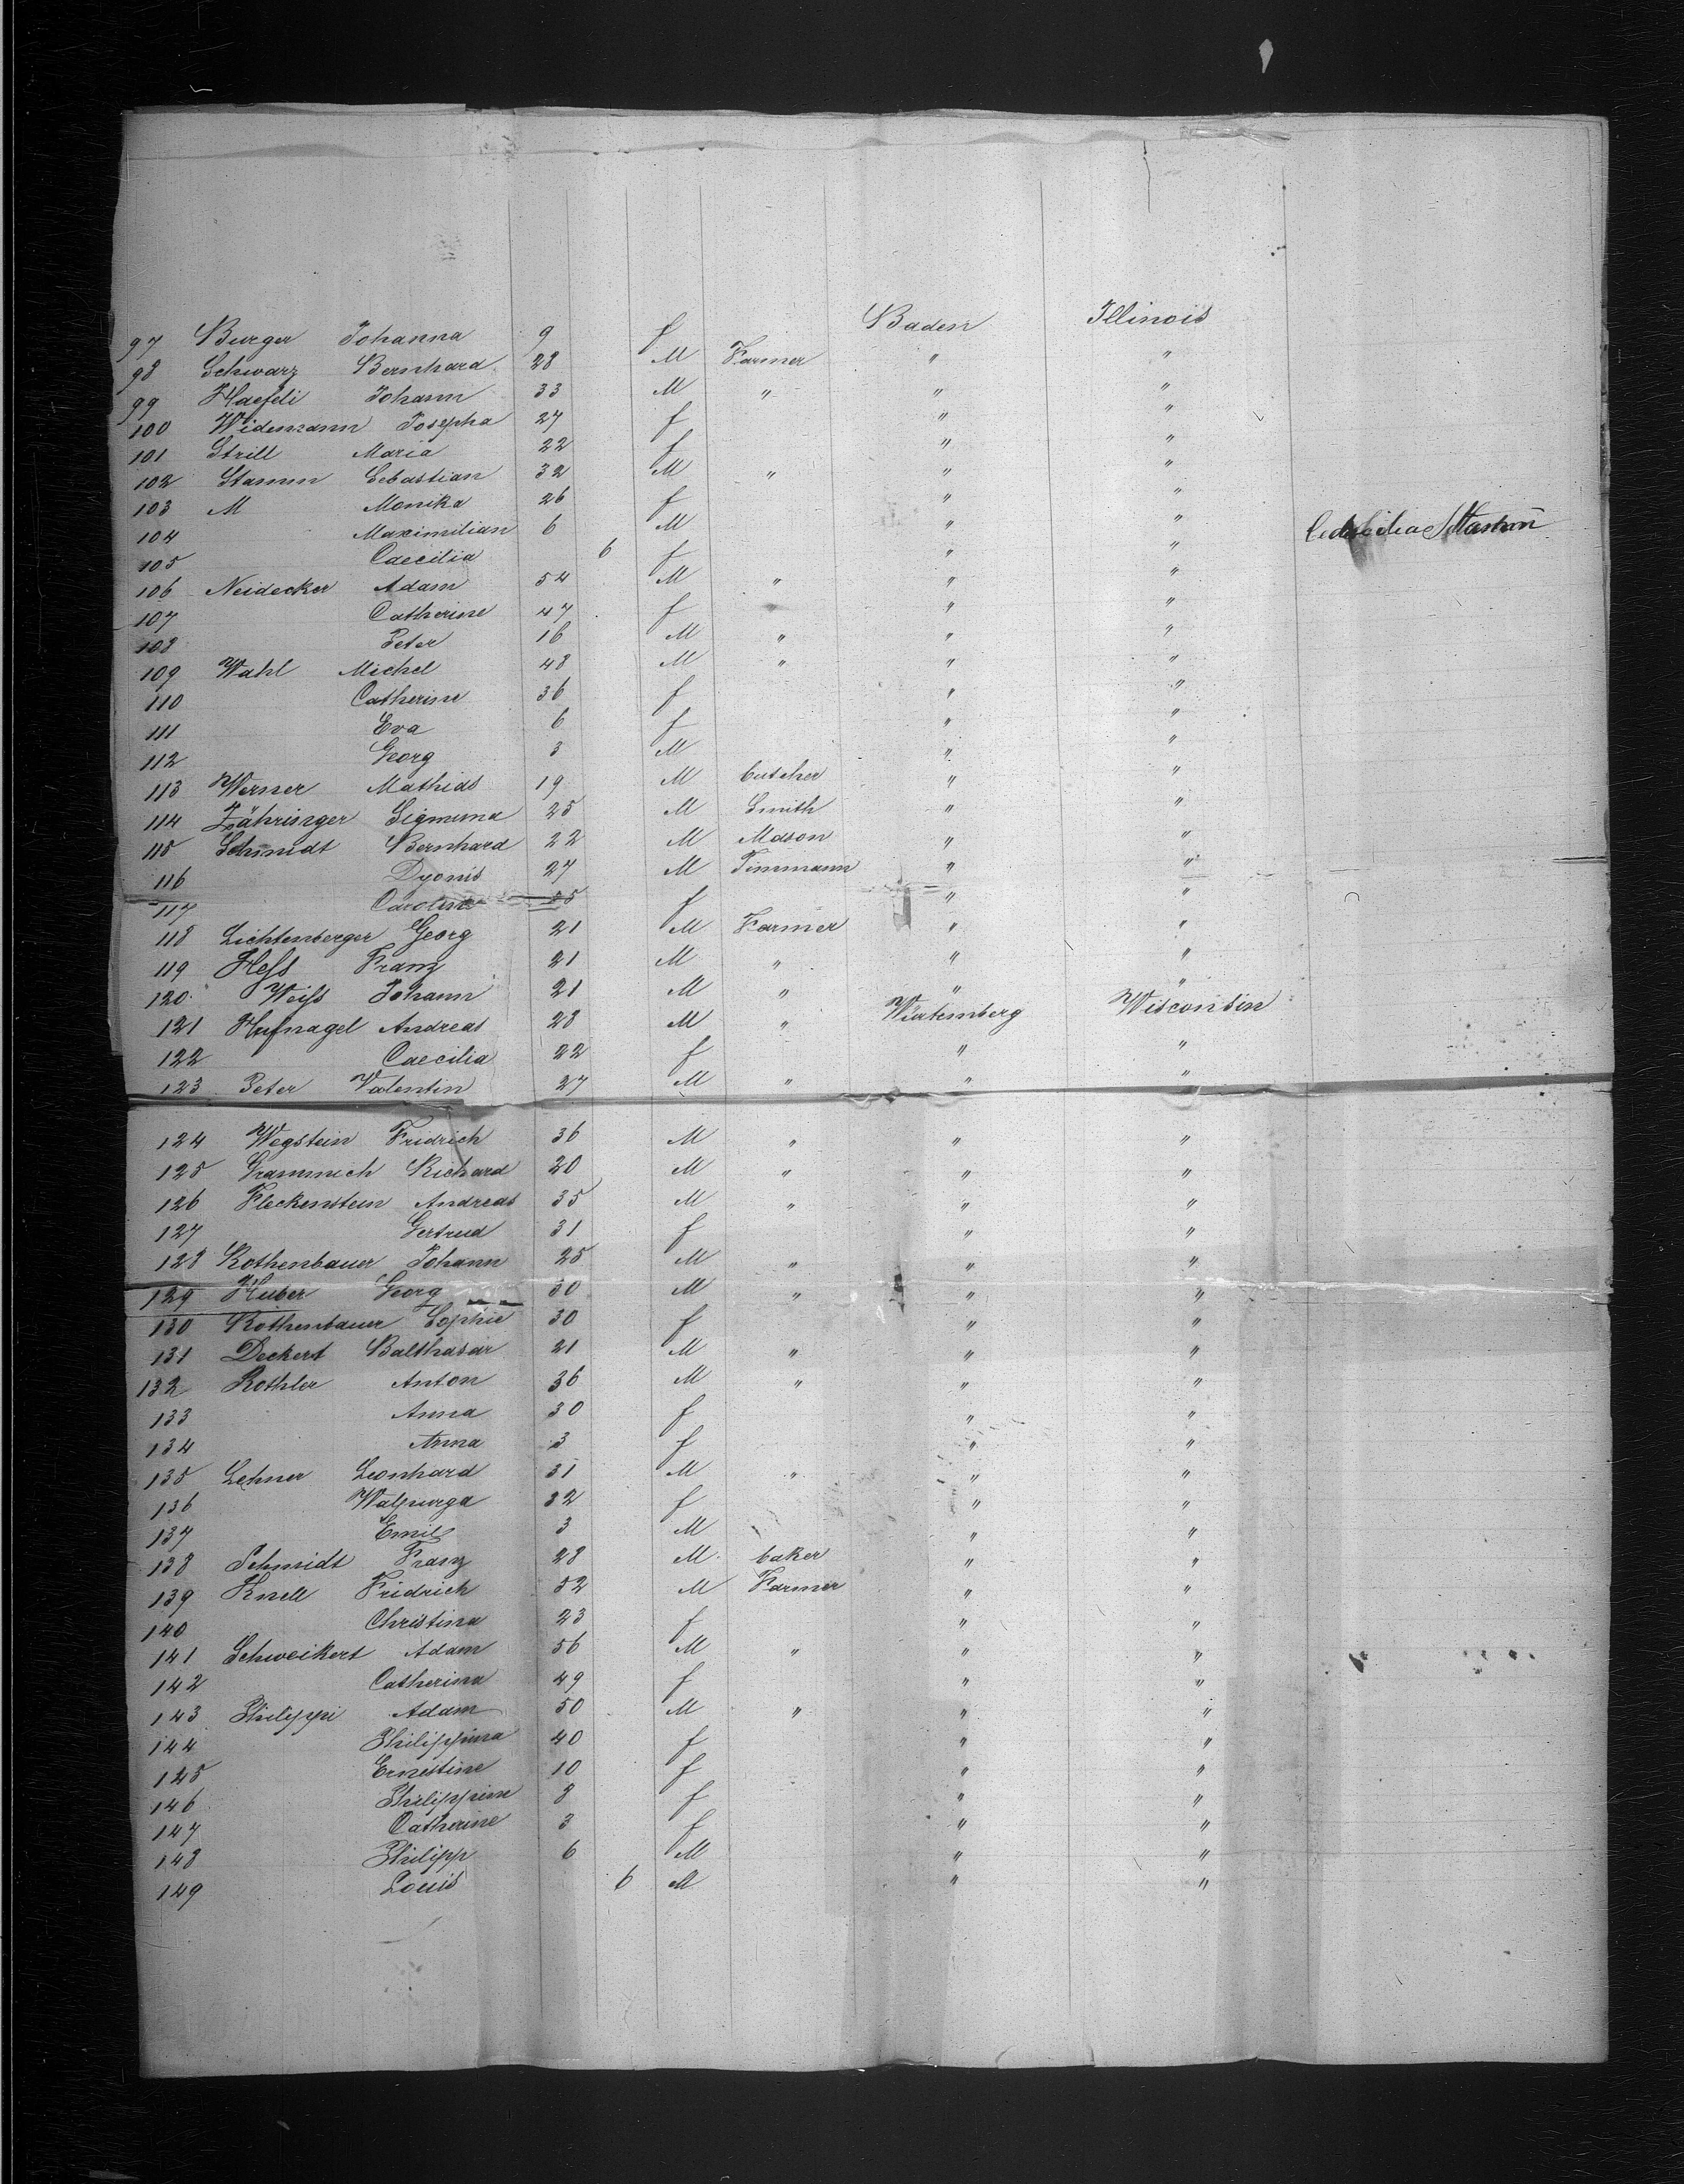 97 Burger Johanna 9 f Baden Illinois
98 Schwarz Bernhard 28 M Farmer " "
99 Haefeli Johann 33 M " " "
100 Widemann Josepha 27 f " "
101 Strill Maria 22 f " "
102 Stamm Sebastian 32 M " " "
103 M Monika 26 f " "
104 Maximilian 6 M " "
105 Caecilia 6 f " "
106 Neidecker Adam 54 M " " "
107 Catherine 47 f " "
108 Peter 16 M " " "
109 Wahl Michel 48 M " " "
110 Catherine 36 f " "
111 Eva 6 f " "
112 Georg 3 M " "
113 Werner Mathias 19 M butcher " "
114 Zähringer Sigmund 25 M Smith " "
115 Schmidt Bernhard 22 M Mason " "
116 Dyonis 27 M Tinnmann " "
117 Caroline f " "
118 Lichtenberger Georg 21 M Farmer " "
119 Hess Franz 21 M " " "
120 Weiss Johann 21 M " " "
121 Hufnagel Andreas 28 M " Würtemberg Wisconsin
122 Caecilia 22 f " "
123 Peter Valentin 27 M " " "
124 Wegstein Fridrich 36 M " " "
125 Grammich Richard 20 M " " "
126 Fleckenstein Andreas 35 M " " "
127 Gertrud 31 f " "
128 Rothenbauer Johann 25 M " " "
129 Huber Georg 30 M " " "
130 Rothenbauer Sophie 30 f " "
131 Deckert Balthasar 21 M " " "
132 Rothler Anton 36 M " " "
133 Anna 30 f " "
134 Anna 3 f " "
135 Lehner Leonhard 31 M " " "
136 Walpurga 32 f " "
137 Emil 3 M " "
138 Schmidt Franz 28 M baker " "
139 Knell Fridrich 52 M Farmer " "
140 Christina 23 f " "
141 Schweikert Adam 56 M " " "
142 Catherina 49 f " "
143 Philippi Adam 50 M " " "
144 Philippina 40 f " "
145 Ernestine 10 f " "
146 Philippine 8 f " "
147 Catherine 3 f " "
148 Philipp 6 M " "
149 Louis 6 M " "